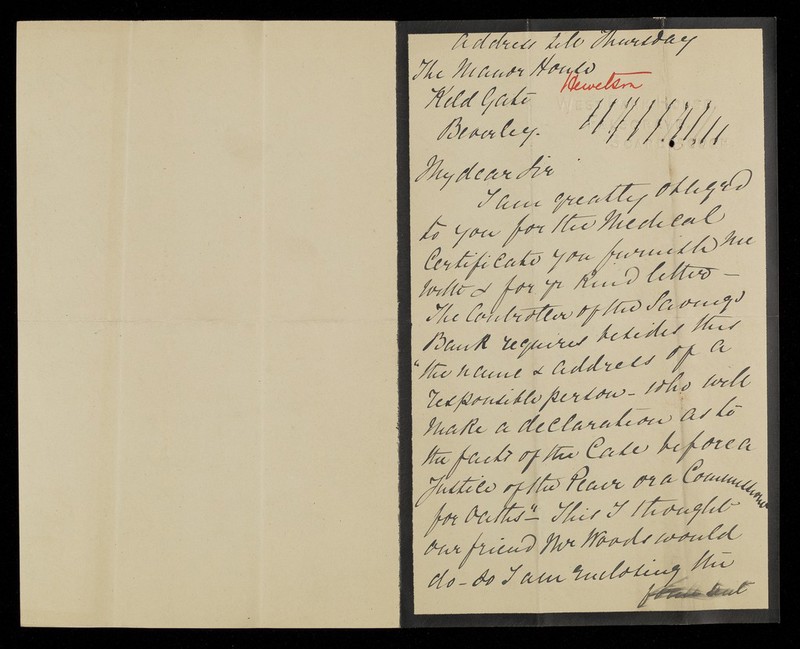 Address till Thursday
The Manor House
Hewetson
Keld Gate
Beverley.
My dear Sir
I am greatly obliged
to you for the Medical
Certificate you furnish me
with & for yr kind letter –
The Controller of the Savings
Bank requires besides this
"the name & address of a
responsible person – who will
make a declaration as to
the facts of the Case before a
Justice of the Peace or a Commissioner
for Oaths" – This I thought
our friend Mr Woods would
do – so I am enclosing the
sent